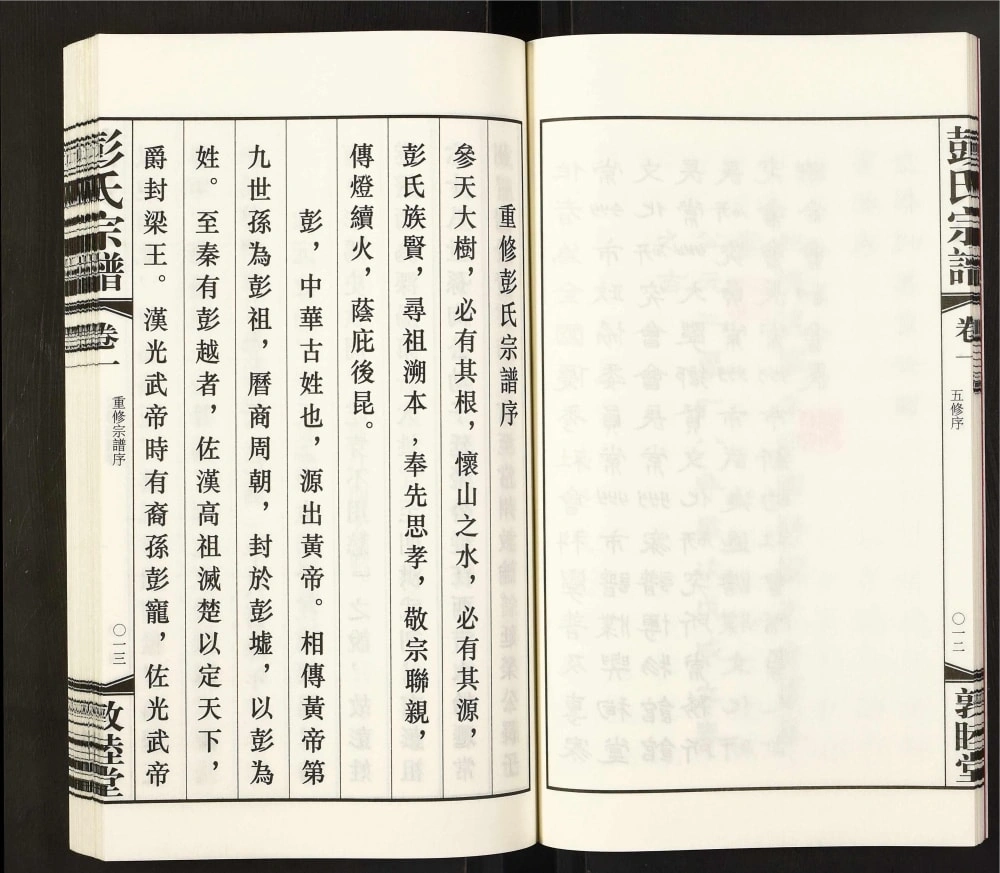 彭氏宗譜
卷一
五修序
〇一二
敦睦堂
重修彭氏宗譜序
參天大樹，必有其根，懷山之水，必有其源，
彭氏族賢，尋祖溯本，奉先思孝，敬宗聯親，
傳燈續火，蔭庇後昆。
彭，中華古姓也，源出黃帝。相傳黃帝第
九世孫為彭祖，曆商周朝，封於彭墟，以彭為
姓。至秦有彭越者，佐漢高祖滅楚以定天下，
爵封梁王。漢光武帝時有裔孫彭寵，佐光武帝
彭氏宗譜
卷一
重修宗譜序
〇一三
敦睦堂